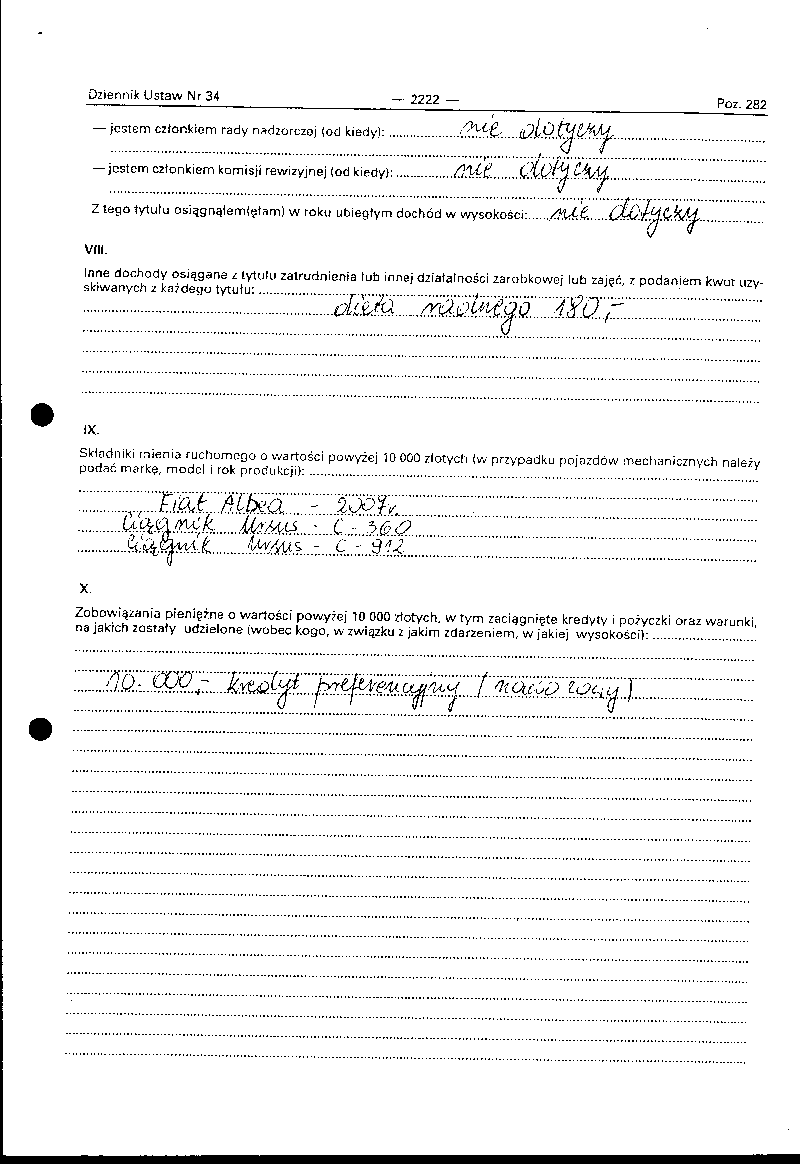 Dziennik Ustaw Nr 34 — 2222 — Poz. 282
— jestem członkiem rady nadzorczej (od kiedy): nie dotyczy
— jestem członkiem komisji rewizyjnej (od kiedy): nie dotyczy
Z tego tytułu osiągnąłem(ęłam) w roku ubiegłym dochód w wysokości: nie dotyczy
VIII.
Inne dochody osiągane z tytułu zatrudnienia lub innej działalności zarobkowej lub zajęć, z podaniem kwot uzy-
skiwanych z każdego tytułu:
dieta radnego 180,-
IX.
Składniki mienia ruchomego o wartości powyżej 10 000 złotych (w przypadku pojazdów mechanicznych należy
podać markę, model i rok produkcji):
Fiat Albea - 2007r.
Ciągnik Ursus - C - 360
Ciągnik Ursus - C - 912
X.
Zobowiązania pieniężne o wartości powyżej 10 000 złotych, w tym zaciągnięte kredyty i pożyczki oraz warunki,
na jakich zostały udzielone (wobec kogo, w związku z jakim zdarzeniem, w jakiej wysokości):
10.000,- kredyt preferencyjny (nawozowy)